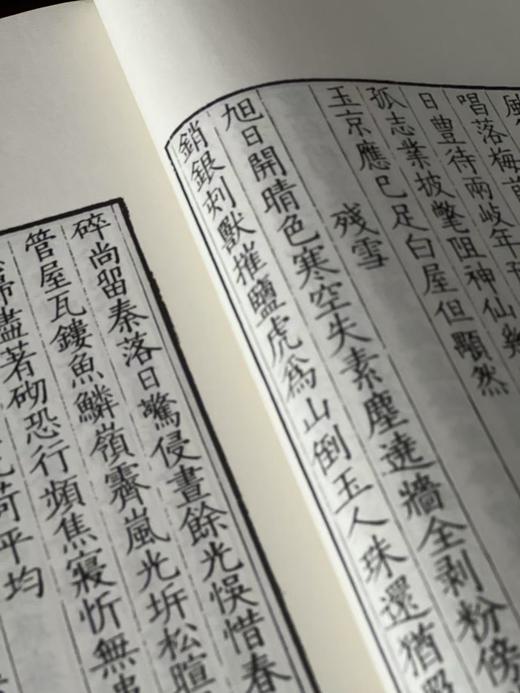 唱落梅
日豊待兩岐年
孤志業披氅阻神仙
玉京應巳足白屋但顒然
残雪
旭日開晴色寒空失素塵遶牆全剥粉傍
銷銀刻獸摧鹽虎為山倒玉人珠還猶
碎尚留秦落日驚侵晝餘光悞惜春
管屋瓦鏤魚鱗嶺霽嵐光坼松暄
盡著砌恐行頻焦寢忻無
荷平均